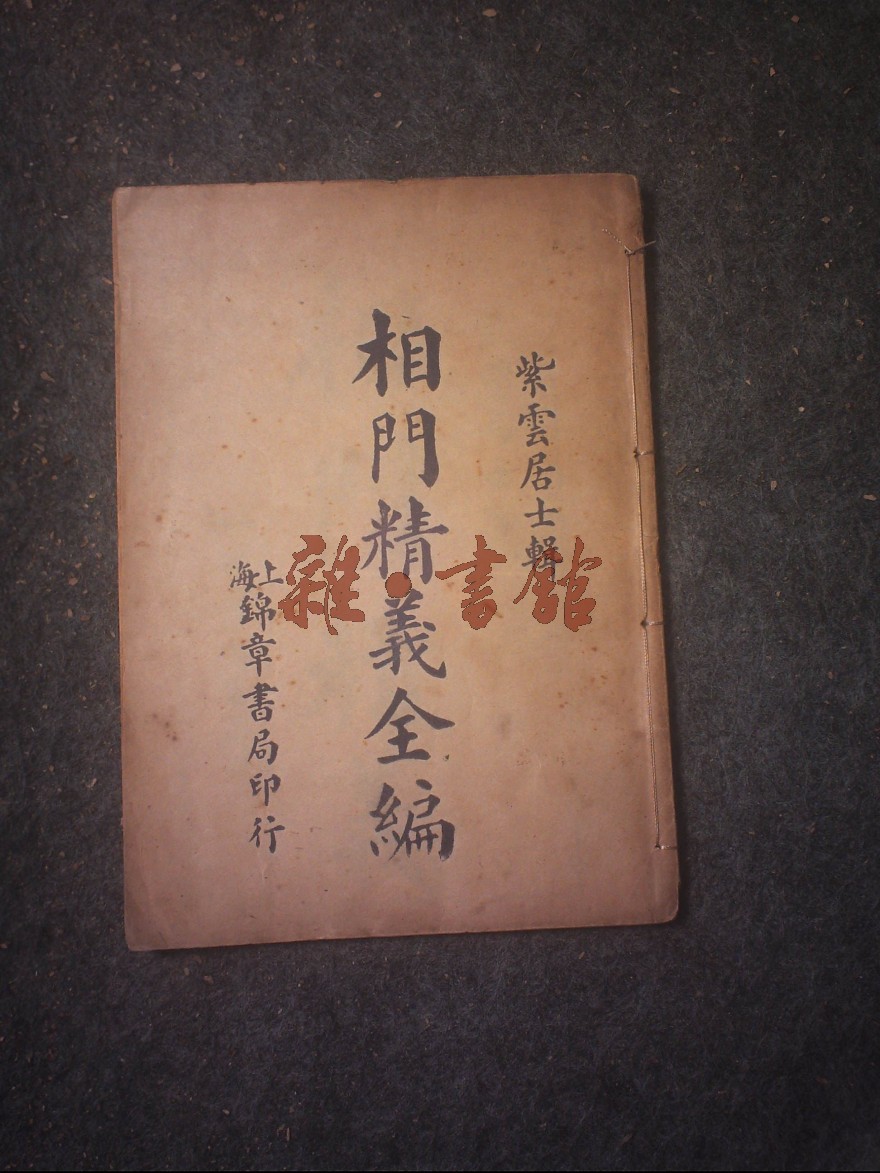 紫雲居士輯
相門精義全編
上海錦章書局印行
雜·書館